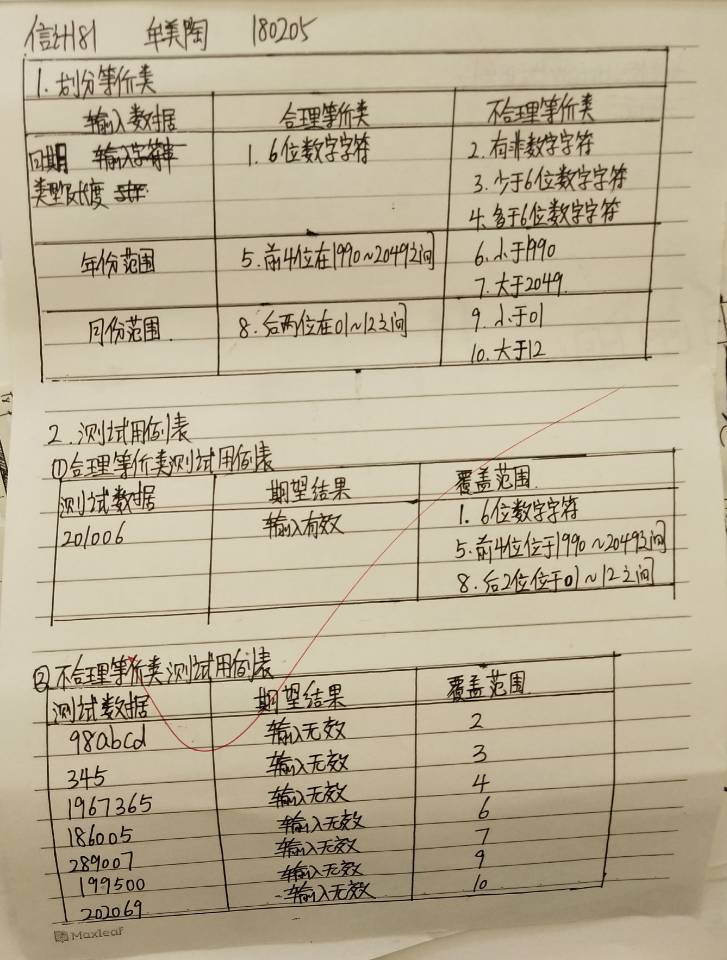 信计181 年美陶 180205
1. 划分等价类
输入数据 合理等价类 不合理等价类
日期 输入字符串 1. 6位数字字符 2. 有非数字字符
类型及长度 3. 少于6位数字字符
4. 多于6位数字字符
年份范围 5. 前4位在1990~2049之间 6. 小于1990
7. 大于2049
月份范围. 8. 后两位在01~12之间 9. 小于01
10. 大于12
2. 测试用例表
①合理等价类测试用例表
测试数据 期望结果 覆盖范围.
201006 输入有效 1. 6位数字字符
5. 前4位位于1990~2049之间
8. 后2位位于01~12之间
②不合理等价类测试用例表
测试数据 期望结果 覆盖范围.
98abcd 输入无效 2
345 输入无效 3
1967365 输入无效 4
186005 输入无效 6
289007 输入无效 7
199500 输入无效 9
202069 输入无效 10
Maxleaf